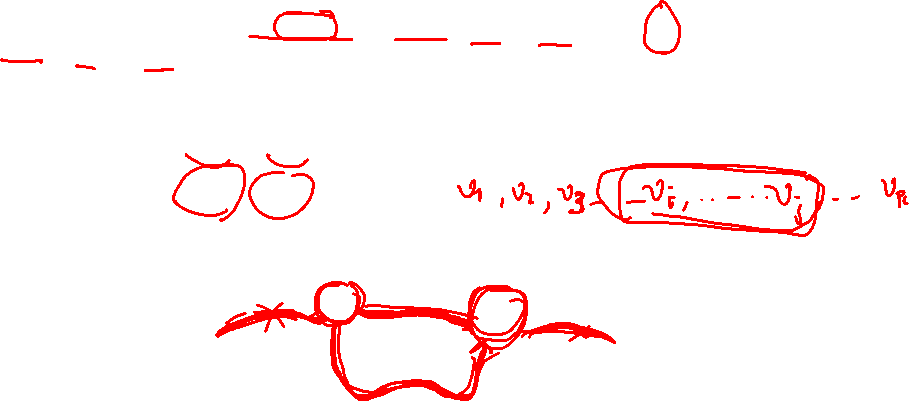 v1, v2, v3 - - vi, .. - .. vj .. - vk